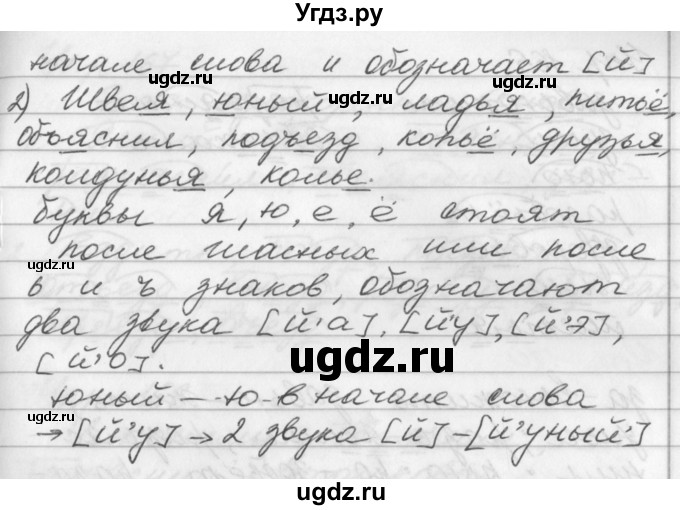 Угдз.ру
начале слова и обозначает [й]
ugdz.ru ugdz.ru
2) Швея, юный, ладья, питьё,
объяснил, подъезд, копьё, друзья,
ugdz.ru ugdz.ru
колдунья, колье.
буквы я, ю, е, ё стоят
после гласных или после
ugdz.ru
ь и ъ знаков, обозначают
два звука [й'а], [й'у], [й'э],
[й'о].
ugdz.ru
юный — ю - в начале слова
ugdz.ru
→ [й'у] → 2 звука [й] - [й'уный']
ugdz.ru